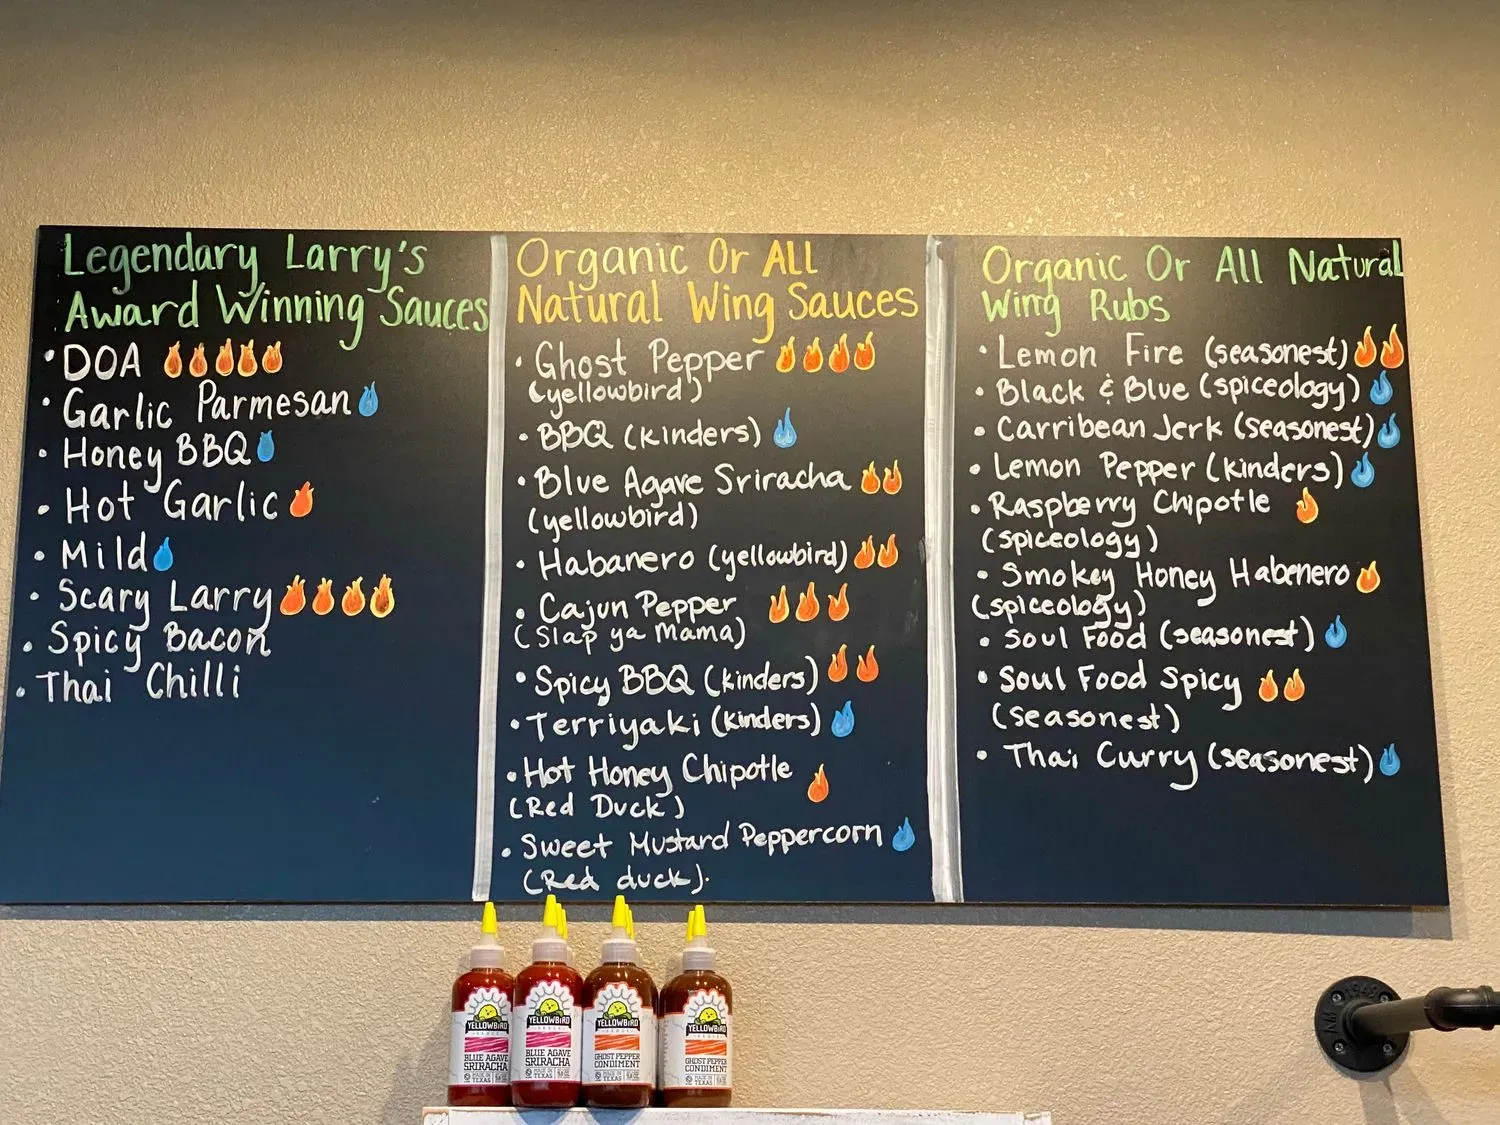 Legendary Larry's
Award Winning Sauces
• DOA
• Garlic Parmesan
• Honey BBQ
• Hot Garlic
• Mild
• Scary Larry
• Spicy Bacon
• Thai Chilli
Organic Or All
Natural Wing Sauces
• Ghost Pepper
(yellowbird)
• BBQ (kinders)
• Blue Agave Sriracha
(yellowbird)
• Habanero (yellowbird)
• Cajun Pepper
(Slap ya Mama)
• Spicy BBQ (kinders)
• Terriyaki (kinders)
• Hot Honey Chipotle
(Red Duck)
• Sweet Mustard Peppercorn
(Red duck).
Organic Or All Natural
Wing Rubs
• Lemon Fire (seasonest)
• Black & Blue (spiceology)
• Carribean Jerk (seasonest)
• Lemon Pepper (kinders)
• Raspberry Chipotle
(spiceology)
• Smokey Honey Habenero
(spiceology)
• Soul Food (seasonest)
• Soul Food Spicy
(seasonest)
• Thai Curry (seasonest)
YELLOWBIRD
BLUE AGAVE
SRIRACHA
MADE IN
TEXAS
YELLOWBIRD
BLUE AGAVE
SRIRACHA
MADE IN
TEXAS
YELLOWBIRD
GHOST PEPPER
CONDIMENT
MADE IN
TEXAS
YELLOWBIRD
GHOST PEPPER
CONDIMENT
MADE IN
TEXAS